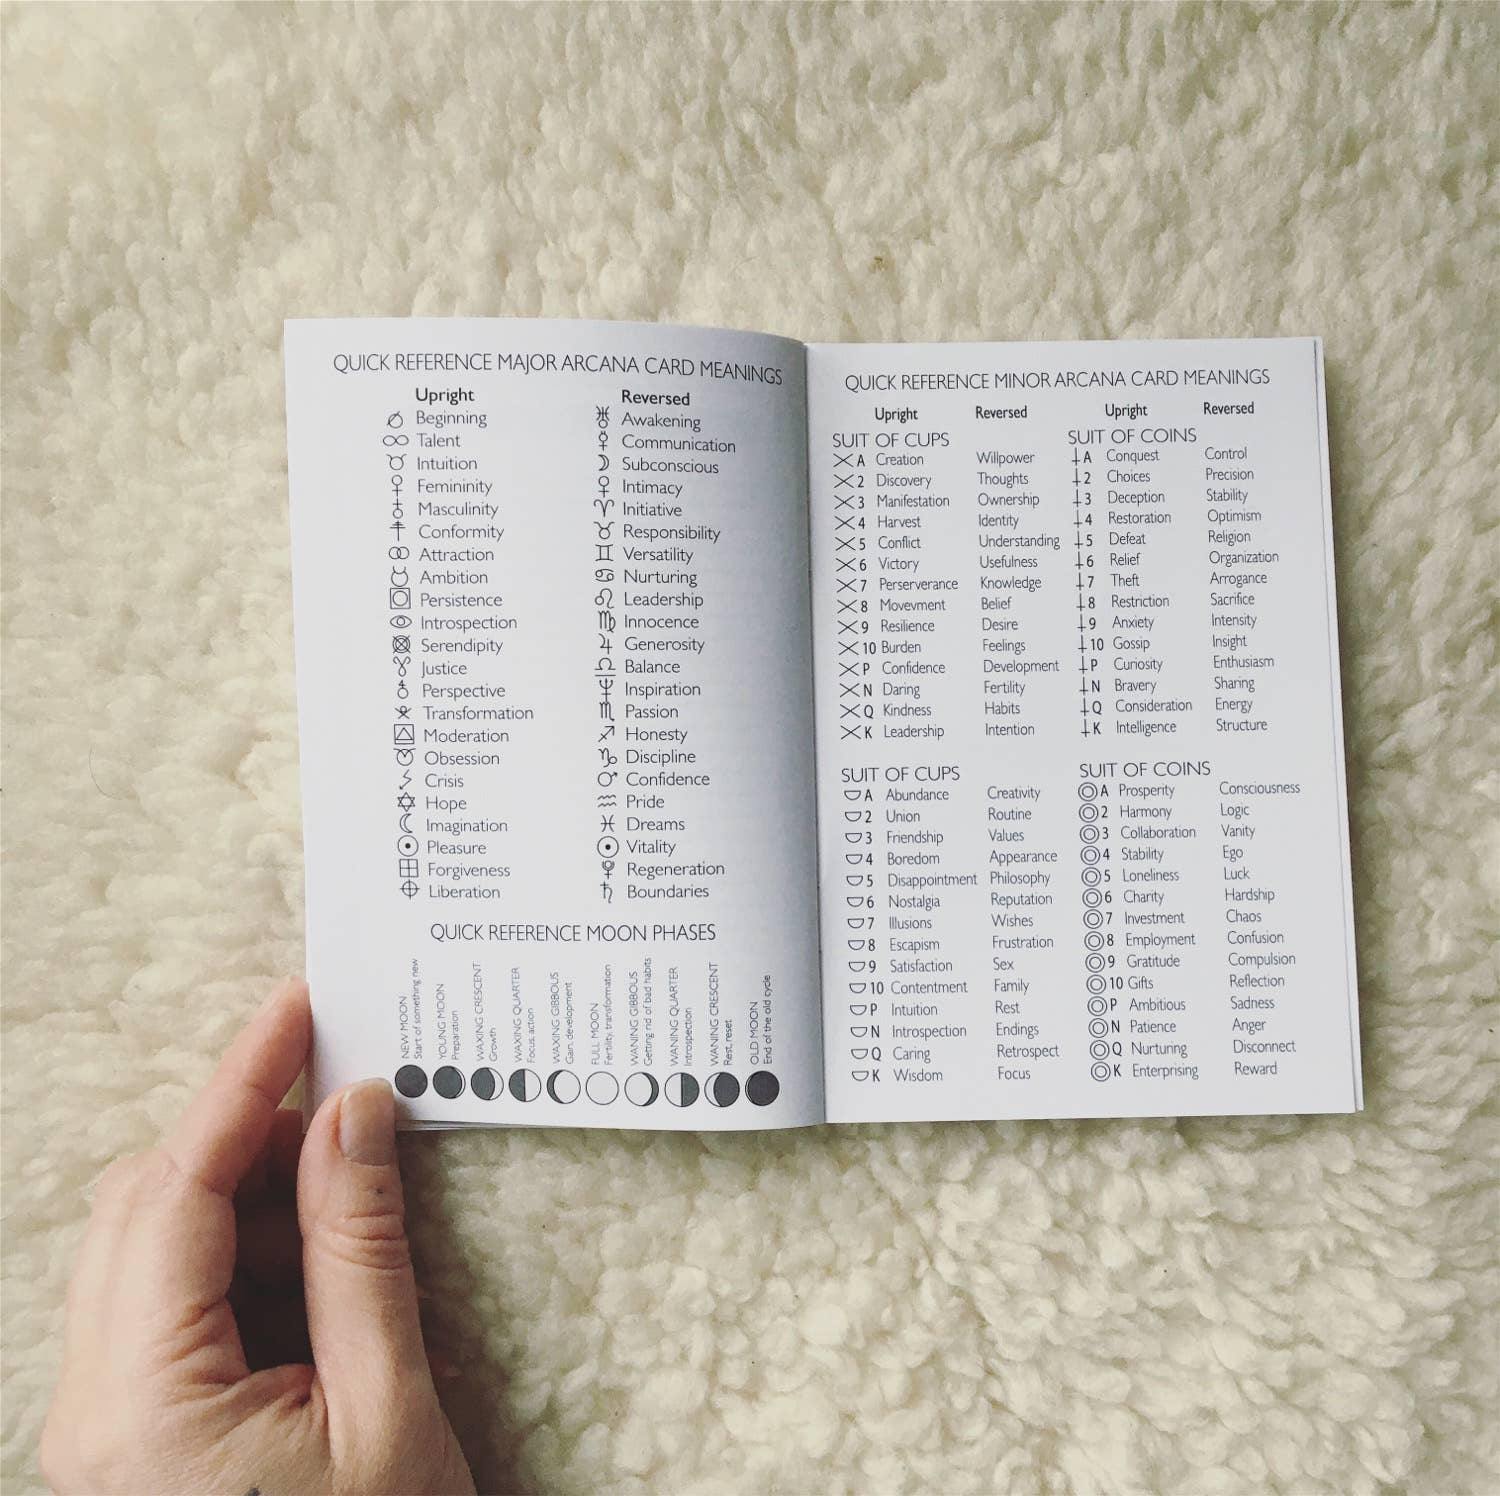 QUICK REFERENCE MAJOR ARCANA CARD MEANINGS
Upright Reversed
Beginning Awakening
Talent Communication
Intuition Subconscious
Femininity Intimacy
Masculinity Initiative
Conformity Responsibility
Attraction Versatility
Ambition Nurturing
Persistence Leadership
Introspection Innocence
Serendipity Generosity
Justice Balance
Perspective Inspiration
Transformation Passion
Moderation Honesty
Obsession Discipline
Crisis Confidence
Hope Pride
Imagination Dreams
Pleasure Vitality
Forgiveness Regeneration
Liberation Boundaries
QUICK REFERENCE MOON PHASES
NEW MOON
Start of something new
YOUNG MOON
Preparation
WAXING CRESCENT
Growth
WAXING QUARTER
Focus, action
WAXING GIBBOUS
Gain, development
FULL MOON
Fertility, transformation
WANING GIBBOUS
Getting rid of bad habits
WANING QUARTER
Introspection
WANING CRESCENT
Rest, reset
OLD MOON
End of the old cycle
QUICK REFERENCE MINOR ARCANA CARD MEANINGS
Upright Reversed
SUIT OF CUPS
A Creation Willpower
2 Discovery Thoughts
3 Manifestation Ownership
4 Harvest Identity
5 Conflict Understanding
6 Victory Usefulness
7 Perserverance Knowledge
8 Movevment Belief
9 Resilience Desire
10 Burden Feelings
P Confidence Development
N Daring Fertility
Q Kindness Habits
K Leadership Intention
Upright Reversed
SUIT OF COINS
A Conquest Control
2 Choices Precision
3 Deception Stability
4 Restoration Optimism
5 Defeat Religion
6 Relief Organization
7 Theft Arrogance
8 Restriction Sacrifice
9 Anxiety Intensity
10 Gossip Insight
P Curiosity Enthusiasm
N Bravery Sharing
Q Consideration Energy
K Intelligence Structure
SUIT OF CUPS
A Abundance Creativity
2 Union Routine
3 Friendship Values
4 Boredom Appearance
5 Disappointment Philosophy
6 Nostalgia Reputation
7 Illusions Wishes
8 Escapism Frustration
9 Satisfaction Sex
10 Contentment Family
P Intuition Rest
N Introspection Endings
Q Caring Retrospect
K Wisdom Focus
SUIT OF COINS
A Prosperity Consciousness
2 Harmony Logic
3 Collaboration Vanity
4 Stability Ego
5 Loneliness Luck
6 Charity Hardship
7 Investment Chaos
8 Employment Confusion
9 Gratitude Compulsion
10 Gifts Reflection
P Ambitious Sadness
N Patience Anger
Q Nurturing Disconnect
K Enterprising Reward